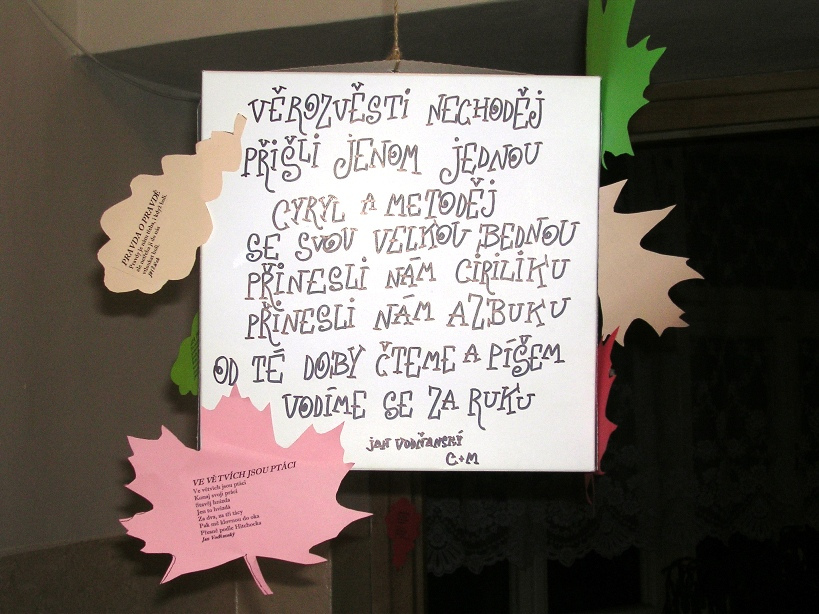 VĚROZVĚSTI NECHODĚJ
PŘIŠLI JENOM JEDNOU
CYRYL A METODĚJ
SE SVOU VELKOU BEDNOU
PŘINESLI NÁM CIRILIKU
PŘINESLI NÁM AZBUKU
OD TÉ DOBY ČTEME A PÍŠEM
VODÍME SE ZA RUKU
JAN VODŇANSKÝ
C+M
PRAVDA O PRAVDĚ
VE VĚTVÍCH JSOU PTÁCI
Ve větvích jsou ptáci
Konaj svoji práci
Stavěj hnízda
Jen to hvízdá
Za dva, za tři tácy
Pak mě klovnou do oka
Přesně podle Hitchcocka
Jan Vodňanský